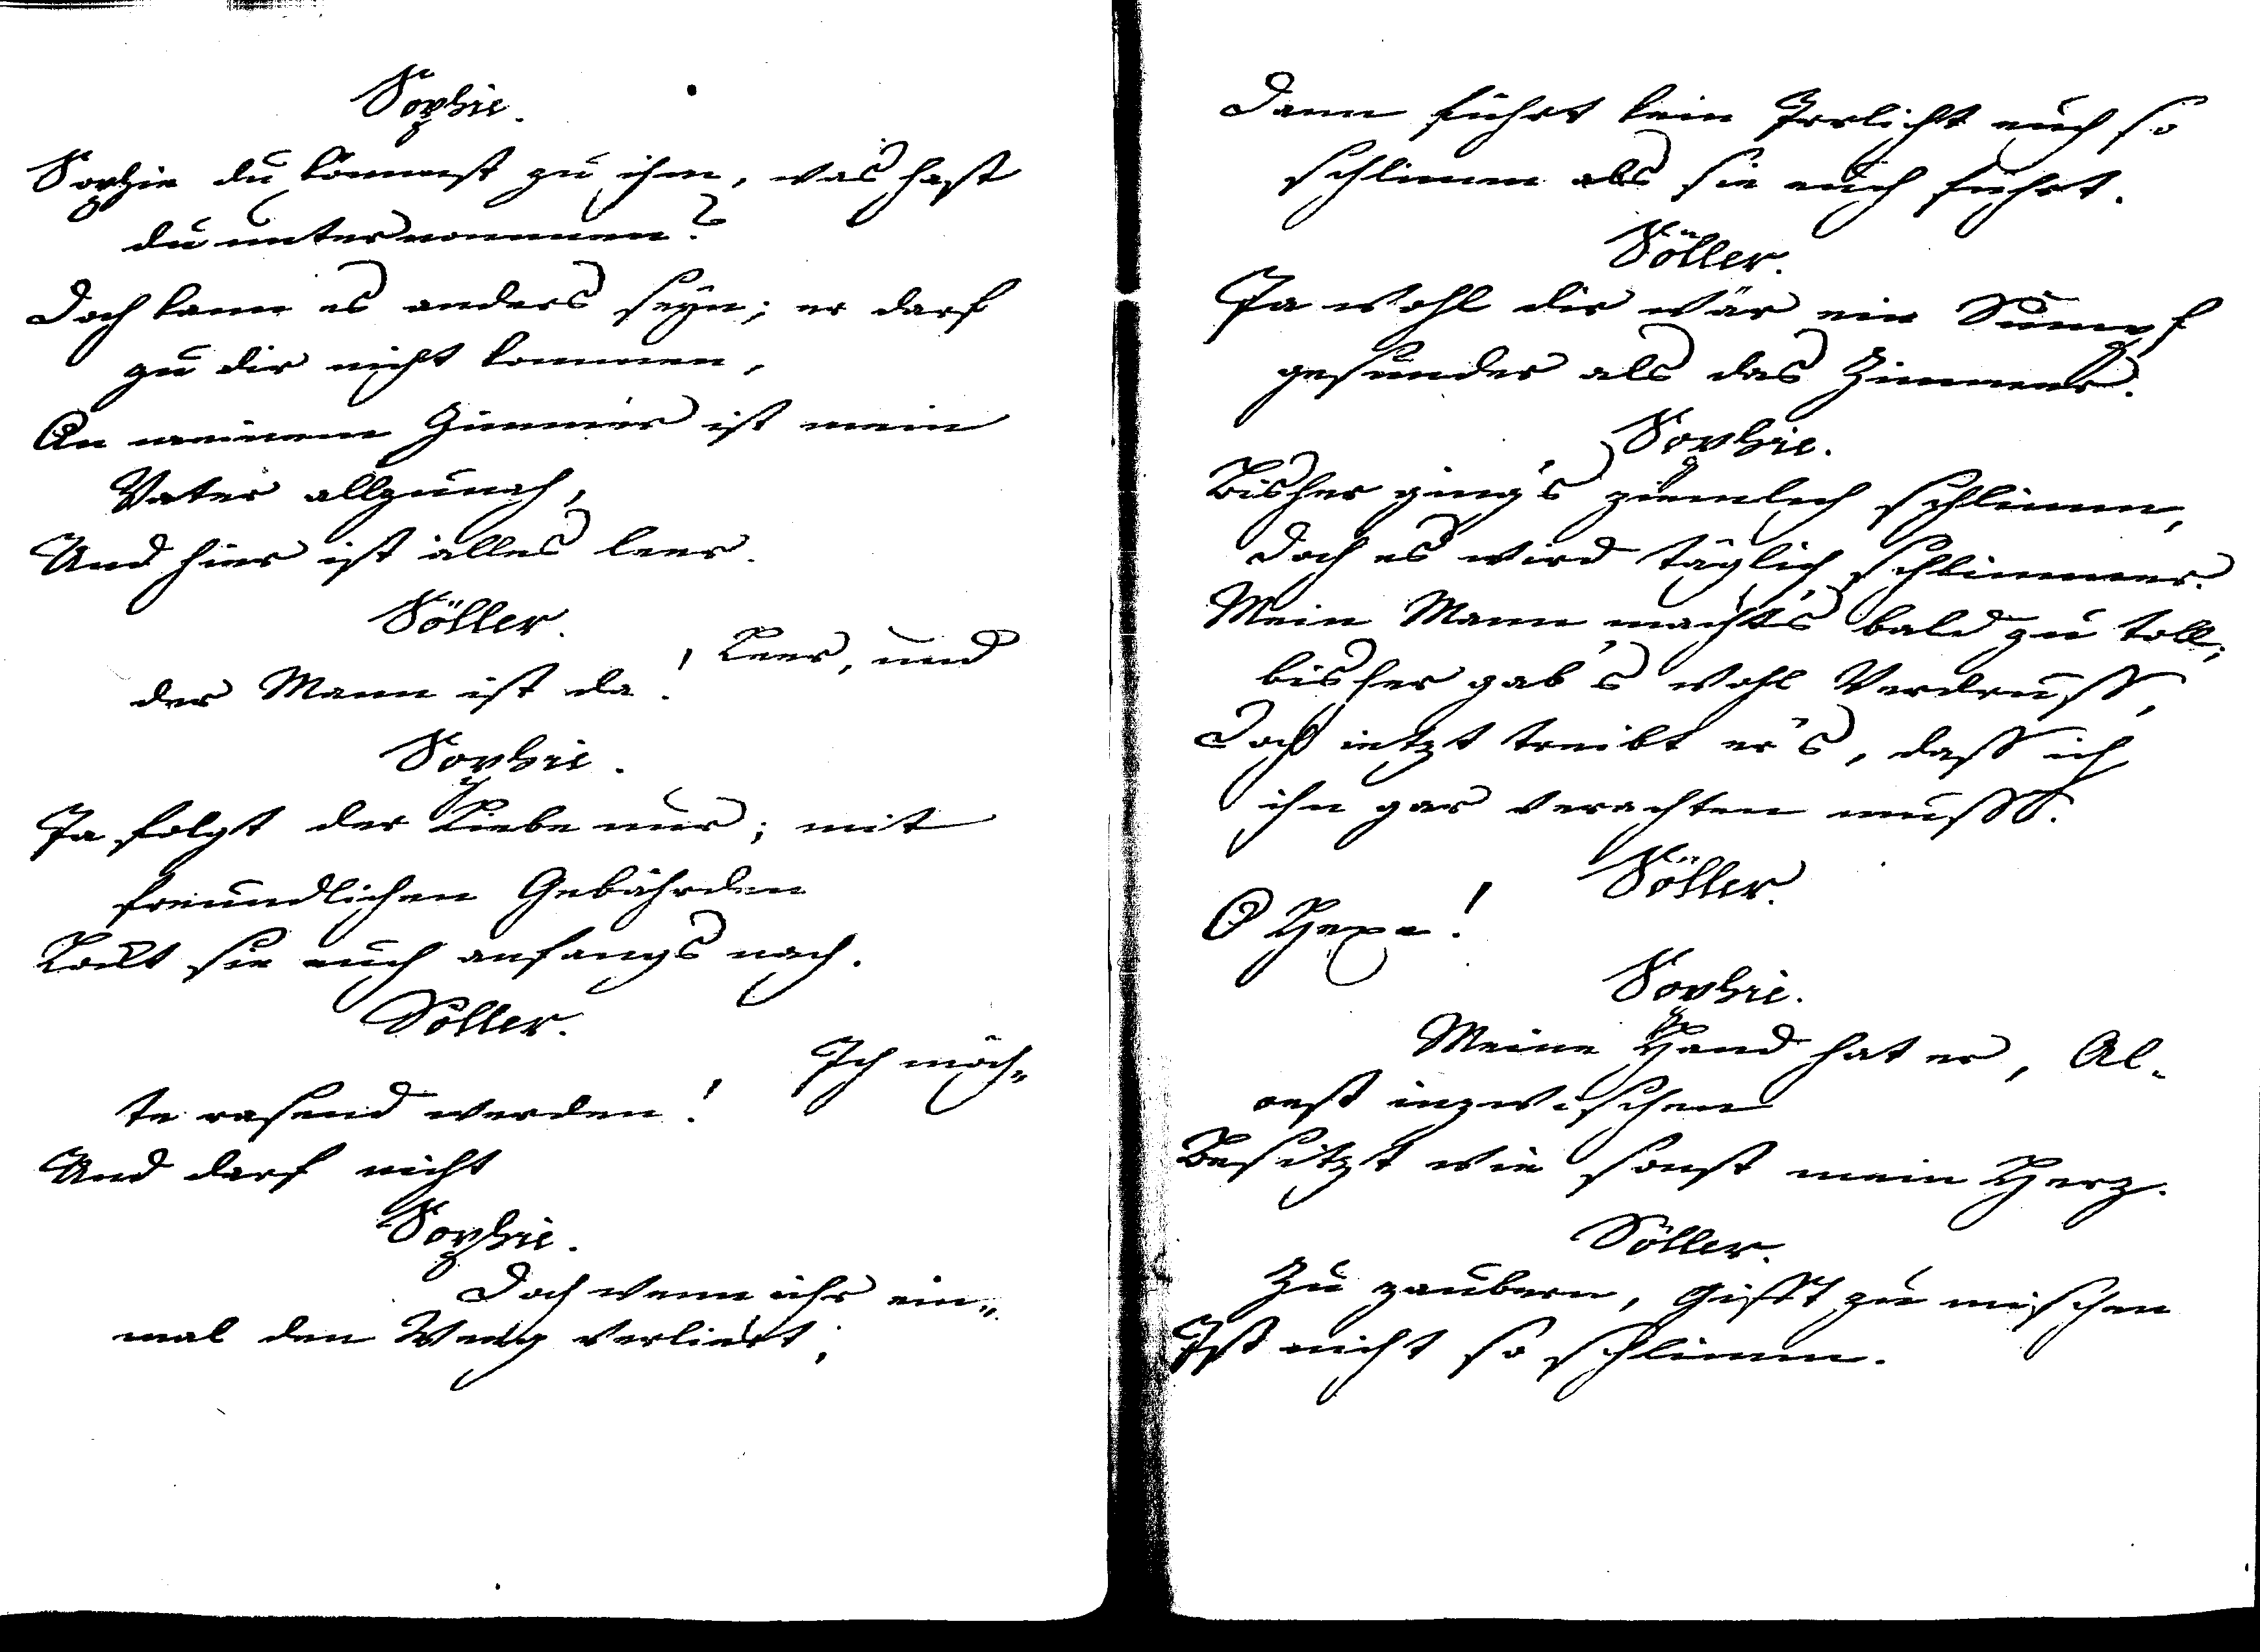 Sophie.
Sophie du kömmst zu ihm, was hast
du unternommen?
Doch kann es anders seyn; er darf
zu dir nicht kommen,
An meinem Zimmer ist mein
Vater allzunah,
Und hier ist alles leer.
Söller.
Leer, und
der Mann ist da!
Sophie.
Ja folgt der Liebe nur; mit
freundlichen Gebährden
Lockt sie euch anfangs nach.
Söller.
Ich möch„
te rasend werden!
Und darf nicht
Sophie.
Doch wenn ihr ein„
mal den Weeg verliert;
Dann führt kein Irrlicht euch so
schlimm als sie euch führt.
Söller.
Ja wohl dir wär ein Sumpf
gesunder als das Zimmer.
Sophie.
Bisher ging's ziemlich schlimm,
doch es wird täglich schlimmer.
Mein Mann macht's bald zu toll;
bisher gab's wohl Verdruss,
Doch ietzt treibt er's, dass ich
ihn gar verachten muss.
Söller.
O Hexe!
Sophie.
Meine Hand hat er, Al-
cest inzwischen
Besitzt wie sonst mein Herz.
Söller.
Zu zaubern, Gifft zu mischen
Ist nicht so schlimm.